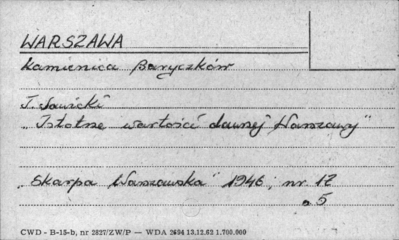 WARSZAWA
Kamienica Baryczków
J. Sawicki
„Istotne wartości dawnej Warszawy"
„Skarpa Warszawska" 1946, nr 12
s. 5
CWD - B-15-b, nr 2827/ZW/P — WDA 2494 13.12.62 1.700.000